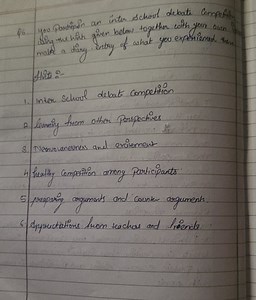 you participan an inter school debate Competition
using out hints given below together with your own
make a diary entry of what you experienced there
Hints :-
1. inter School debate Competition
2 learning from other perspectives.
3 Nervousness and excitement
4 healthy competition among participants
5 preparing arguments and counter argument.
6. Appreciations from teachers and friends.